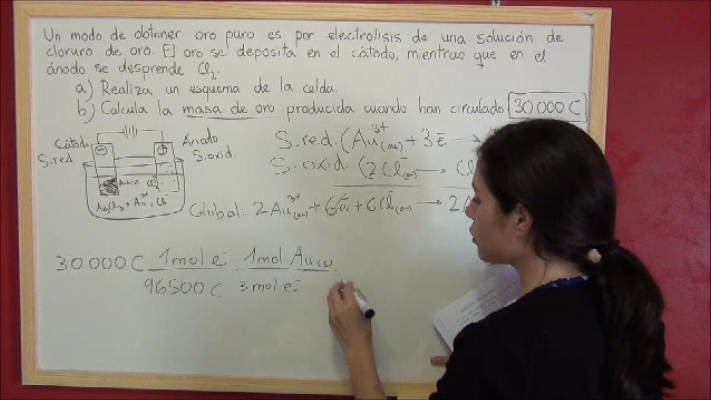 Un modo de obtener oro puro es por electrolisis de una solución de
cloruro de oro. El oro se deposita en el cátodo, mientras que en el
ánodo se desprende Cl₂.
a) Realiza un esquema de la celda.
b) Calcula la masa de oro producida cuando han circulado 30 000 C
Cátodo
S. red
Ánodo
S. oxid.
S. red. (Au³⁺(ac) + 3e⁻ →
S. oxid. (2Cl⁻(ac) → Cl
Global: 2Au³⁺(ac) + 6e⁻ + 6Cl⁻(ac) → 2
30 000 C 1 mol e⁻ 1 mol Au(s)
96500 C 3 mol e⁻